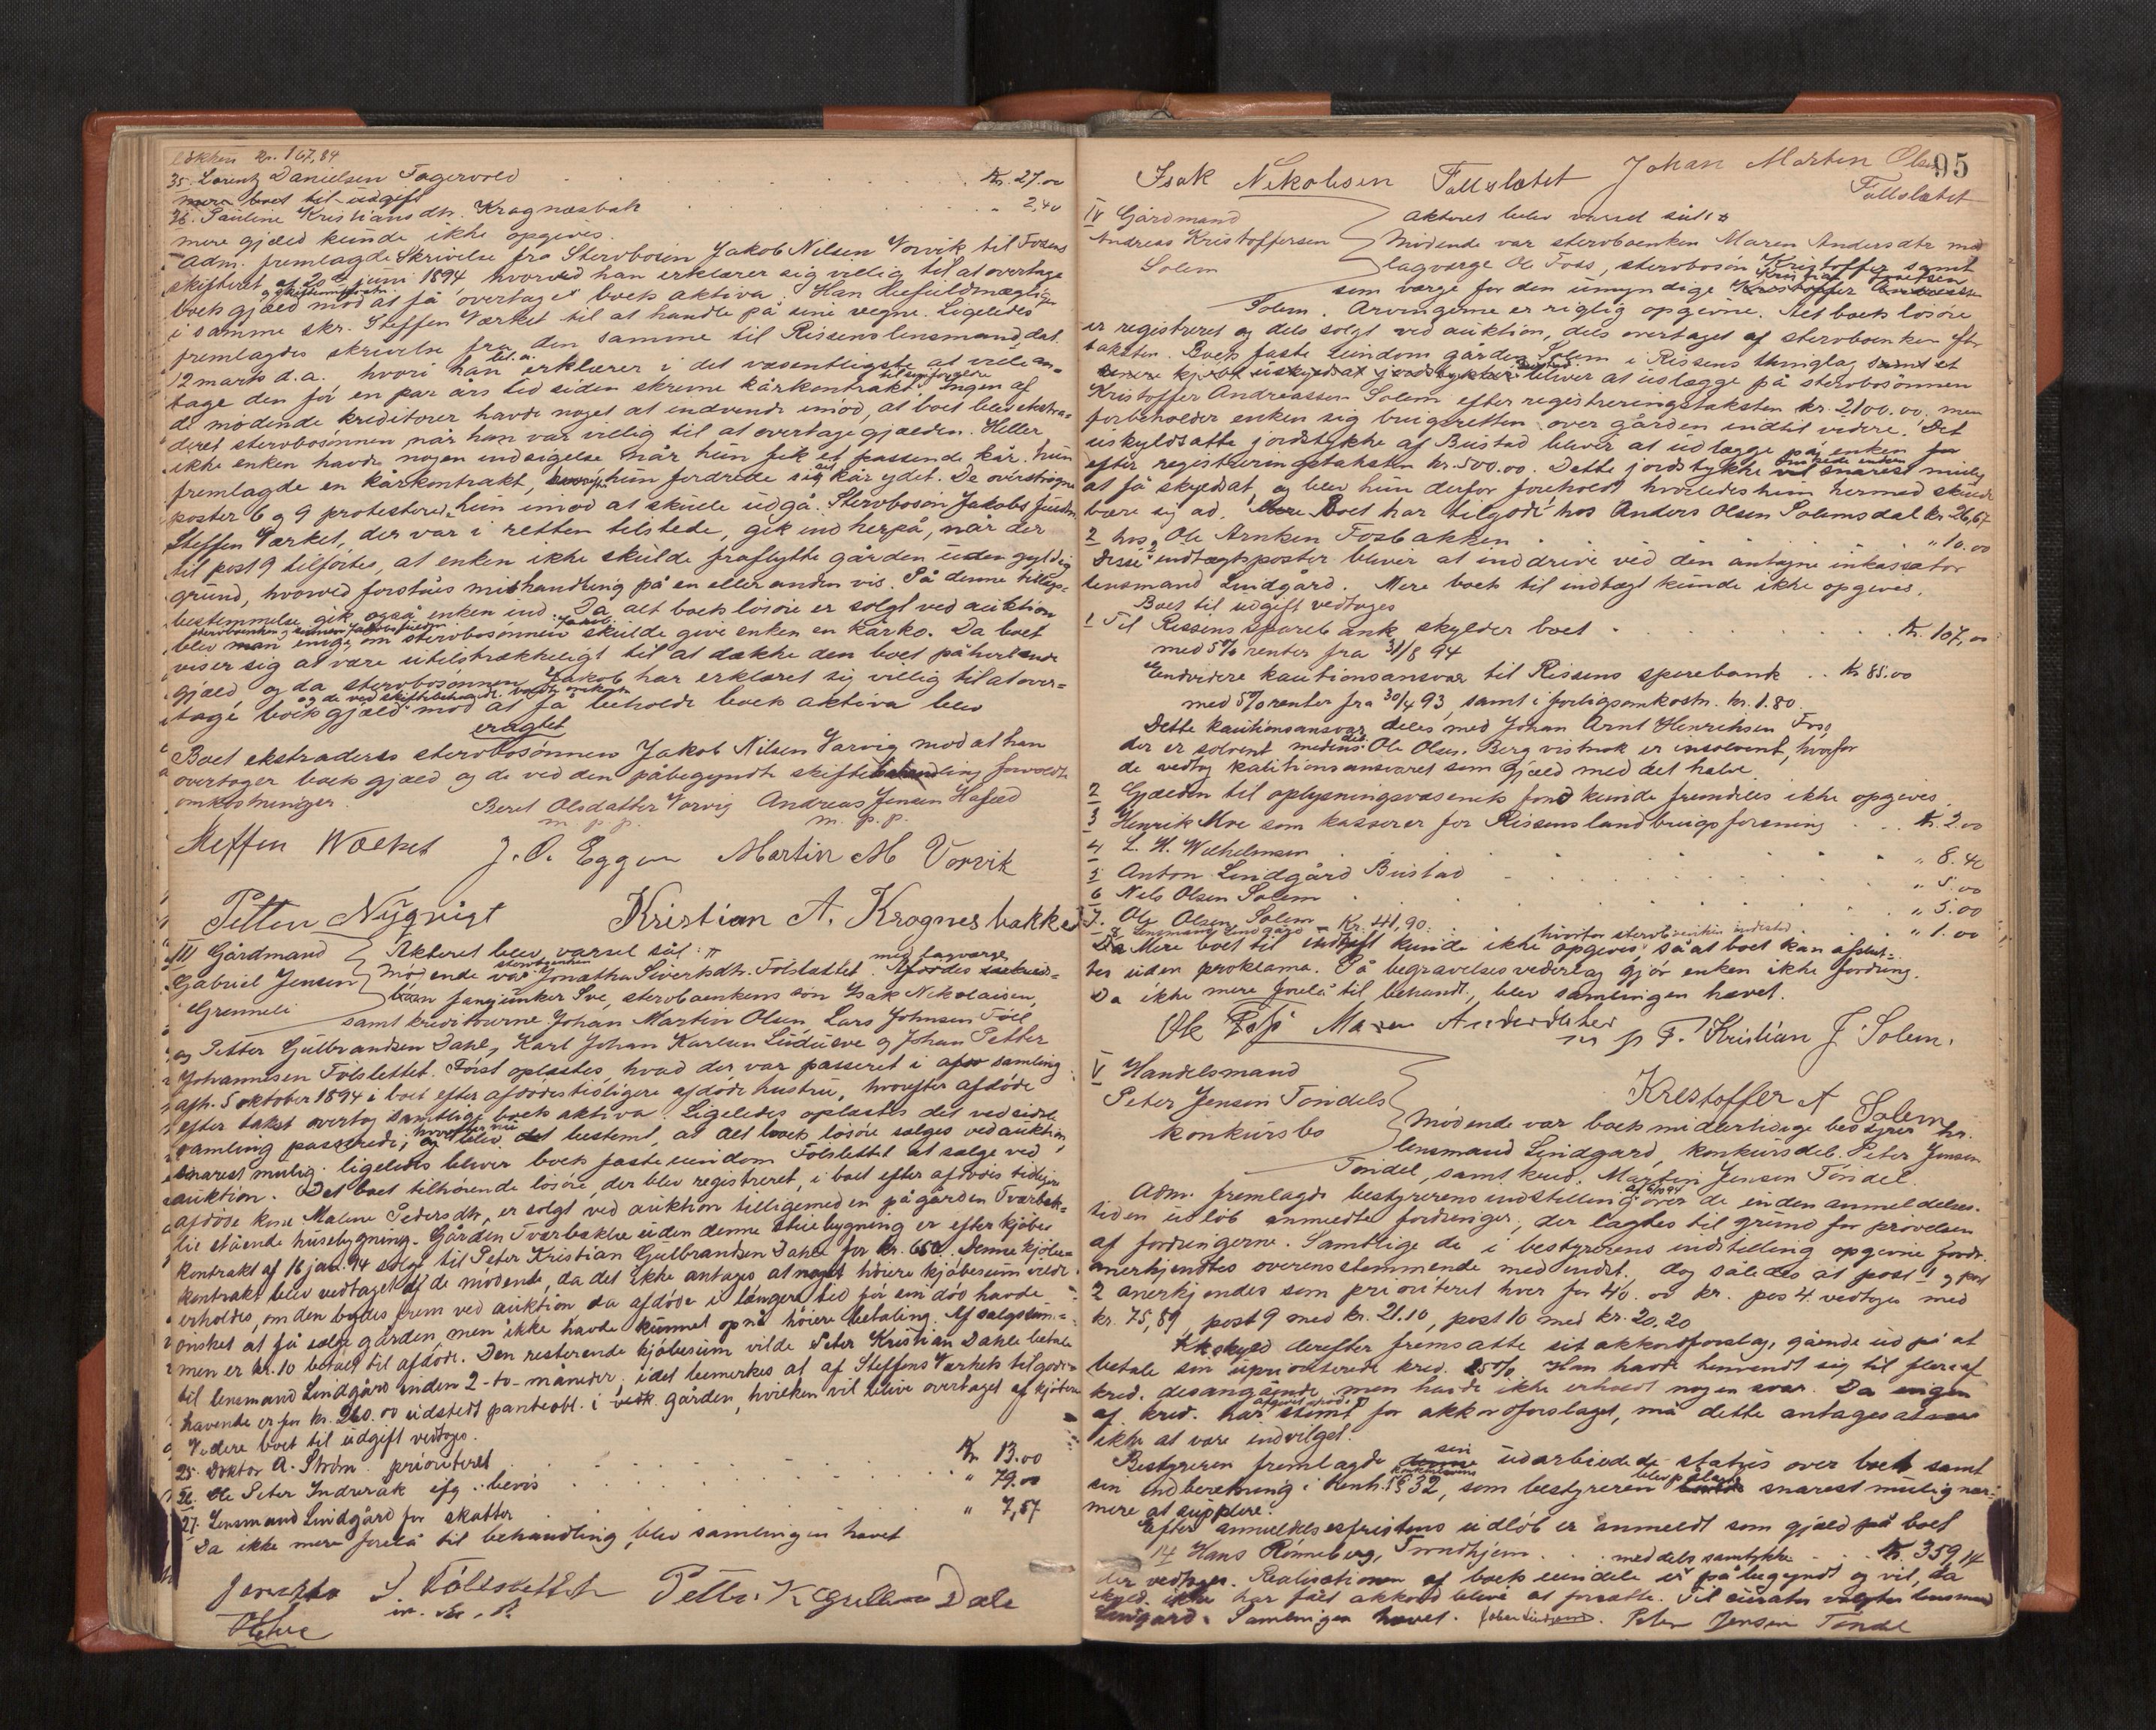 løkken kr. 167,84
35. Lorentz Danielsen Fagervold . . . kr. 27.00
mere boet til udgift
36. Pauline Kristiansdtr. Kragnæsbak . . . " 2,40
mere gjæld kunde ikke opgives.
Adm. fremlagde Skrivelse fra Stervbosøn Jakob Nilsen Vorvik til Fosens
skifteret af 20de juni 1894 hvorved han erklærer sig villig til at overtage
boets gjæld mod at få overtage boets aktiva. Han
i samme skr. Steffen Værket til at handle på sine vegne. Ligeledes
fremlagdes skrivelse fra den samme til Rissens lensmand, dat.
12 marts d.a. hvori han bl.a. erklærer i det væsentligste at ville an=
tage den for en par års tid siden skrevne kårkontrakt. Ingen af
de mødende kreditorer havde noget at indvende imod, at boet blev ekstra=
deret stervbosønnen når han var villig til at overtage gjælden. Heller
ikke enken havde nogen indsigelse når hun fik et passende kår. hun
fremlagde en kårkontrakt, hun fordrede sig kår ydet. De overstrøgne
poster 6 og 9 protesterede hun imod at skulle udgå. Stervbosøn Jakobs
Steffen Værket, der var i retten tilstede, gik ind herpå, når der
til post 9 tilføies, at enken ikke skulde fraflytte gården uden gyldig
grund, hvorved forståes mishandling på en eller anden vis. På denne tillægs=
bestemmelse gik også enken ind. Da alt boets løsøre er solgt ved auktion
blev man enige om stervbosønnen Jakob skulde give enken en kårko. Da boet
viser sig at være utilstrækkeligt til at dække den boet påhvilende
gjæld og da stervbosønnen Jakob har erklæret sig villig til at over=
tage boets gjæld og de ved skiftebehandl. voldte omkostn. mod at få beholde boets aktiva blev
eragtet
Boet ekstraderes stervbosønnen Jakob Nilsen Varvig mod at han
overtager boets gjæld og de ved den påbegyndte skiftebehandling forvoldte
omkostninger.
Beret Olsdatter Vorvig Andreas Jensen Hafeld
m. p. p. m. p. p.
Steffen Wærket J. O. Eggen Martin M Vorvik
Petter Nyqvist Kristian A. Krognesbakke
III Gårdmand
Gabriel Jensen
Grønneli
Akteret blev varsel sål. π
Mødende var stervbenken Jonetha Sivertsdtr. Følstættet med lagværge
fanejunker Sve, stervboenkens søn Isak Nikolaisen,
samt kreditorerne Johan Martin Olsen, Lars Johnsen Føll
og Petter Gulbrandsen Dahl, Karl Johan Karlsen og Johan Petter
Johannesen Følslettet. Først oplæstes, hvad der var passeret i samling
afh. 5 oktober 1894 i boet efter afdødes tidligere afdøde hustru, hvorefter afdøde
efter takst overtog samtlige boets aktiva. Ligeledes oplæstes det ved sidste
samling passerede; hvorefter nu blev bestemt, at alt boets løsøre sælges ved auktion
snarest mulig. ligeledes bliver boets faste eiendom Følslettet at sælge ved
auktion. Det boet tilhørende løsøre, der blev registreret, i boet efter afdødes tidligere
afdøde kone Malene Pedersdtr. er solgt ved auktion tilligemed en på gården Tværbak=
lie stående husebygning. Gården Tværbaklie uden denne stuebygning er efter kjøbe=
kontrakt af 16 jan. 94 solgt til Peter Kristian Gulbrandsen Dahle for kr. 650. Denne kjøbe=
kontrakt blev vedtaget af de mødende, da det ikke antages at noget høiere kjøbesum vilde
erholdes, om den bødes frem ved auktion da afdøde i længere tid før sin død havde
ønsket at få sælge gården, men ikke havde kunnet opnå høiere betaling. Af salgssum=
men er kr. 10 betalt til afdøde. Den resterende kjøbesum vilde Peter Kristian Dahle betale
til lensmand Lindgård inden 2 - to - måneder, idet bemerkes at af Steffens Værkets tilgode=
havende er for kr. 260.00 udstedt panteobl. i gården, hvilken vil blive overtaget af kjøberen
Videre boet til udgift vedtages.
25. Doktor A. Strøm prioriteret . . . Kr. 13.00
26. Ole Peter Indreråk ifg. bevis . . . " 79.00
27. Lensmand Lindgård for skatter . . . " 7,57
Da ikke mere forelå til behandling, blev samlingen hævet
Jonetha S Følslettet Petter K Gulbran Dale
m. p. p.
95
Isak Nikolisen Følslætet Johan Morten Olsen
Følslætet
IV Gårdmand
Andreas Kristoffersen
Solem
Akteret blev varsel sål.
Mødende var stervboenken Maren Andersdtr med
lagværge Ole Foss, stervbosøn Kristoffer samt
som værge for den umyndige
Solem. Arvingerne er rigtig opgivne. Alt boets løsøre
er registreret og dels solgt ved auktion, dels overtaget af stervboenken efter
taksten. Boets faste eiendom gården Solem i Rissens thinglag samt et
bliver at udlægge på stervbosønnen
Kristoffer Andreassen Solem efter registreringstaksten kr. 2100.00. men
forbeholder enken sig brugeretten over gården indtil videre. Det
uskyldsatte jordstykke af Bustad bliver at udlægge på enken
efter registreringstaksten kr. 500.00. Dette jordstykke snarest mulig
at få skyldsat, og blev hun derfor foreholdt hvorledes hun hermed skulde
bære sig ad. Boet har tilgode hos Anders Olsen Solemsdal kr 26,67
2 hos Ole Arnken Fosbakken . . . " 10.00
Disse indtægtsposter bliver at inddrive ved den antagne inkassator
lensmand Lindgård. Mere boets til indtægt kunde ikke opgives.
Boet til udgift vedtages
1 Til Rissens sparebank skylder boet . . . kr. 107,00
med 5% renter fra 31/8 94
Endvidere kautionsansvar til Rissens sparebank . . kr 85.00
med 5% renter fra 30/4 93, samt i forligsomkostn. kr. 1.80.
Dette kautionsansvar deles med Johan Arnt Henrichsen Foss,
der er solvent medens Ole Olsen Berg vistnok er insolvent, hvorfor
de vedtog kautionsansvaret som gjæld med det halve
2 Gjælden til oplysningsvæsenets fond kunde fremdeles ikke opgives.
3 Henrik Moe som kasserer for Rissens landbrugsforening . . . kr. 2.00
4 L. H. Wilhelmsen . . . " 8.40
5 Anton Lindgård Bustad . . . " 5.00
6 Nils Olsen Solem . . . " 5.00
7. Ole Olsen Solem . . . " 1.00
8. Lensmand Lindgård Kr. 41,90.
Mere boet til kunde ikke opgives, så at boet kan afslut=
tes uden proklama. På begravelsesvederlag gjør enken ikke fordring.
Da ikke mere forelå til behandl., blev samlingen hævet.
Ole Foss Maren Andersdatter
m p p. Kristian J. Solem.
Krestoffer A Solem
V Handelsmand
Peter Jensen Tøndels
konkursbo
Mødende var boets midlertidige bestyrer hr.
lensmand Lindgård, konkursdeb. Peter Jensen
Tøndel, samt kred. Martin Jensen Tøndel.
Adm. fremlagde bestyrerens indstilling over de inden anmeldelses=
tiden udløb anmeldte fordringer, der lagdes til grund for prøvelsen
af fordringerne. Samtlige de i bestyrerens indstilling opgivne fordr.
anerkjendtes overensstemmende med indst. dog således at post 1 og post
2 anerkjendes som prioriteret hver for 40.00 kr. pos 4 vedtoges med
kr. 75,89, post 9 med kr. 21.10, post 10 med kr. 20.20
skyld. derefter fremsatte sit akkordforslag, gående ud på at
betale sin uprioriterede kred. 25%. Han havde henvendt sig til flere af
kred. desangående men havde ikke erholdt nogen svar. Da ingen
af kred. har stemt for akkordforslaget, må dette antages
ikke at være indvilget.
Bestyreren fremlagde sin udarbeidede status over boet samt
sin indberetning i henh. § 32, som bestyreren blev pålagt snarest mulig nær=
mere at supplere.
Efter anmeldelsesfristens udløb er anmeldt som gjæld på boet
14 Hans Rønneberg, Trondhjem . . . meddels samtykke . . . kr. 359,14
der vedtages. Realisationen af boets eiendele er påbegyndt og vil, da
skyld. ikke har fået akkord blive at forsætte. Til curator valgtes lensmand
Lindgård. Samlingen hævet. Peter Jensen Tøndel